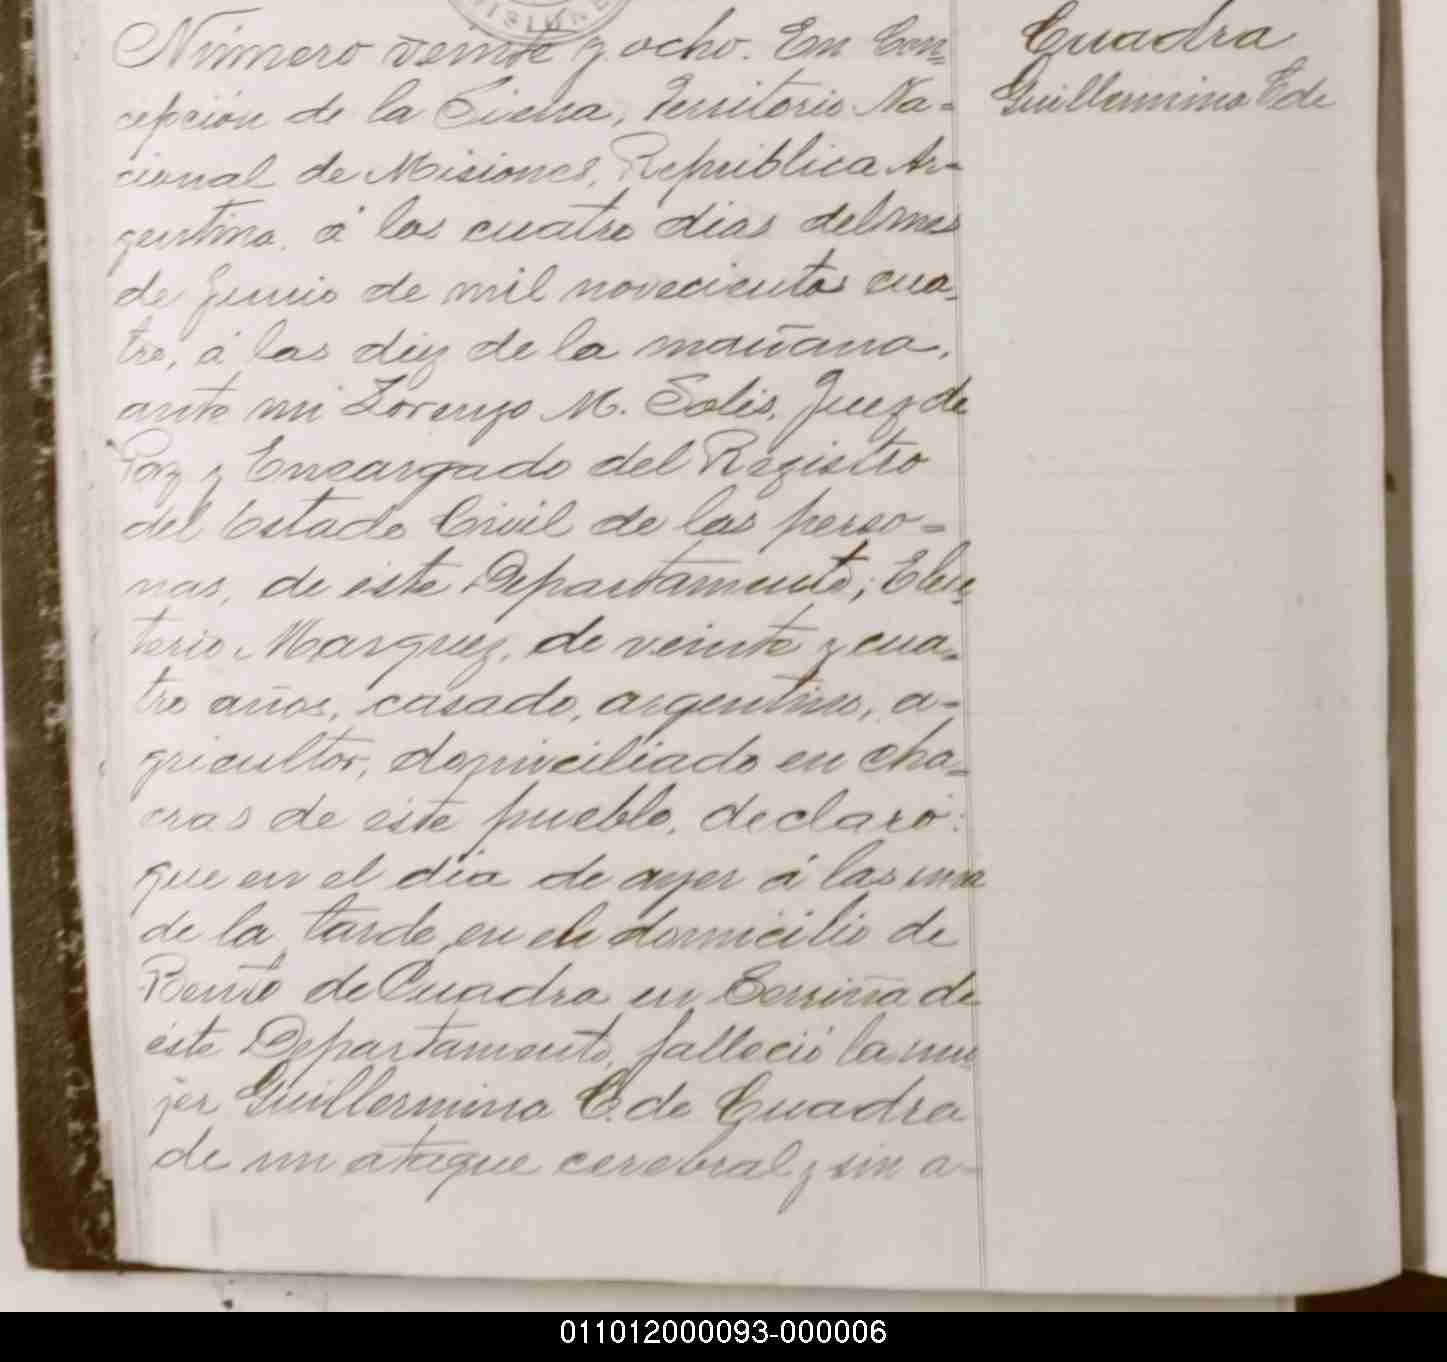 MISIONE
Número veinte y ocho. En Con=
cepción de la Sierra, Territorio Na=
cional de Misiones, República Ar=
gentina, á los cuatro dias del mes
de Junio de mil novecientos cua=
tro, á las diez de la mañana,
ante mi Lorenzo M. Solis, Juez de
Paz y Encargado del Registro
del Estado Civil de las perso=
nas, de éste Departamento; Eleu=
terio Marquez, de veinte y cua=
tro años, casado, argentino, a=
gricultor, domiciliado en cha=
cras de éste pueblo, declaró:
que en el dia de ayer á las una
de la tarde, en el domicilio de
Benito de Cuadra en de
éste Departamento, falleció la mu=
jer Guillermina C. de Cuadra
de un ataque cerebral y sin a=
Cuadra
Guillermina C de
011012000093-000006